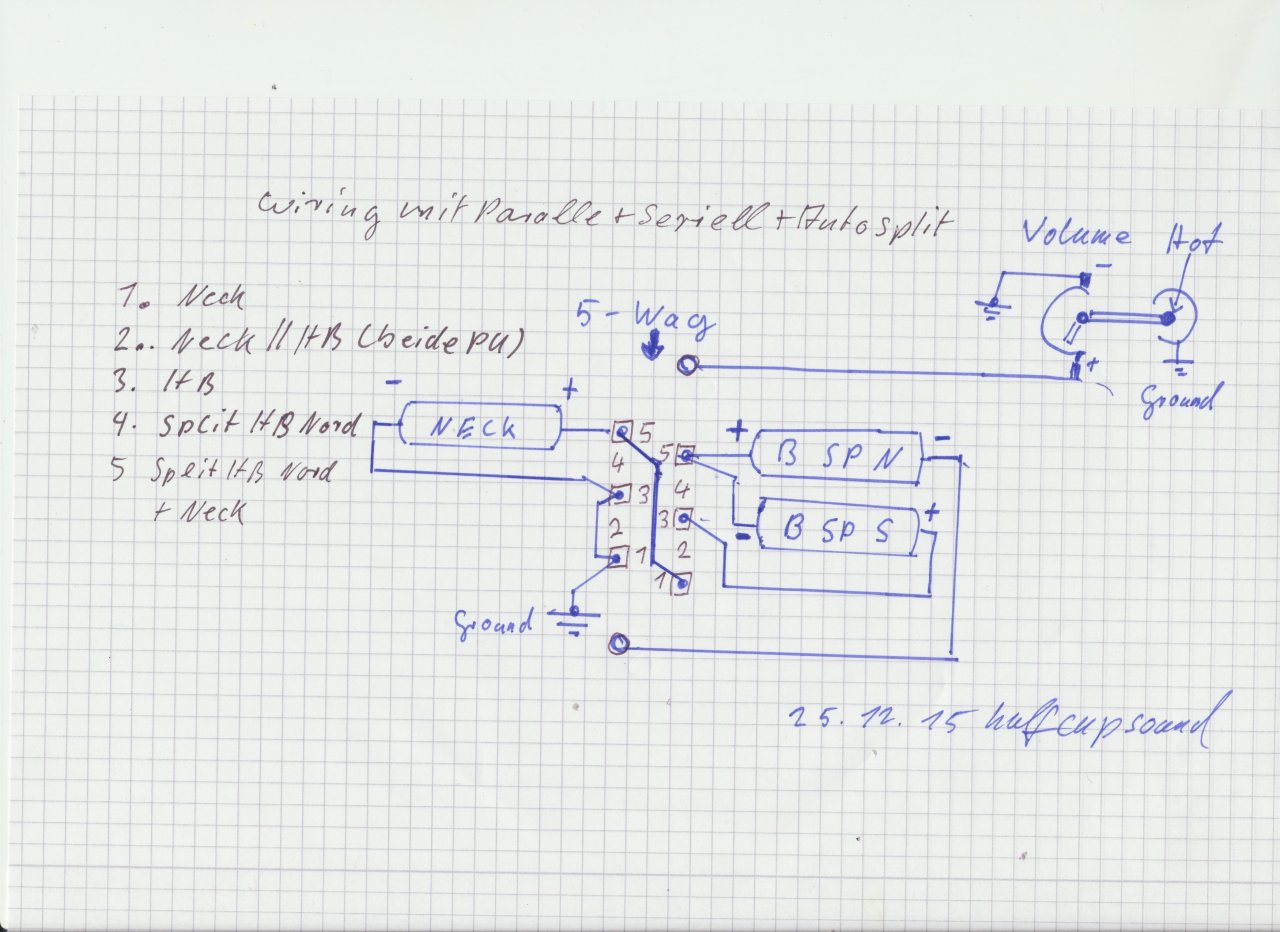 Wiring mit Paralle + Seriell + Autosplit
Volume Hot
1. Neck
2. Neck // HB (beide PU)
3. HB
4. Split HB Nord
5 Split HB Nord
+ Neck
5-Wag
-
+
Ground
- +
NECK
5
4
3
2
1
5
4
3
2
1
+ B SP N -
- B SP S +
Ground
25.12.15 halfcupsound